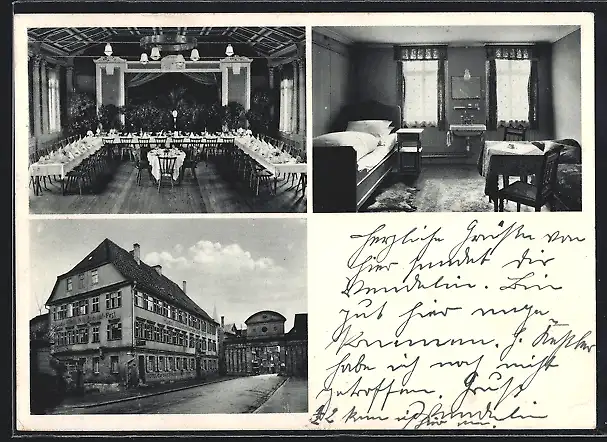 Herzliche Grüße von
hier sendet dir
Wendelin. Bin
gut hier ange
kommen. H. Keßler
habe ich noch nicht
getroffen. Gruß
Wendelin
Post